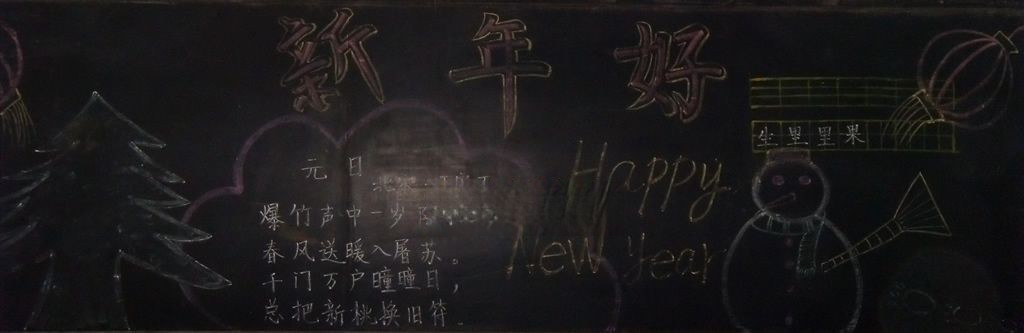 新年好
坐里里果
元日
Happy
爆竹声中一岁
New Year
春风送暖入屠苏。
千门万户瞳瞳日，
总把新桃换旧符.